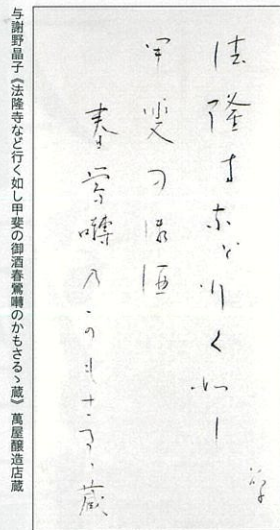 法隆寺など行く如し
甲斐の御酒
春鶯囀のかもさるゝ蔵
晶子
与謝野晶子《法隆寺など行く如し甲斐の御酒春鶯囀のかもさるゝ蔵》 萬屋醸造店蔵